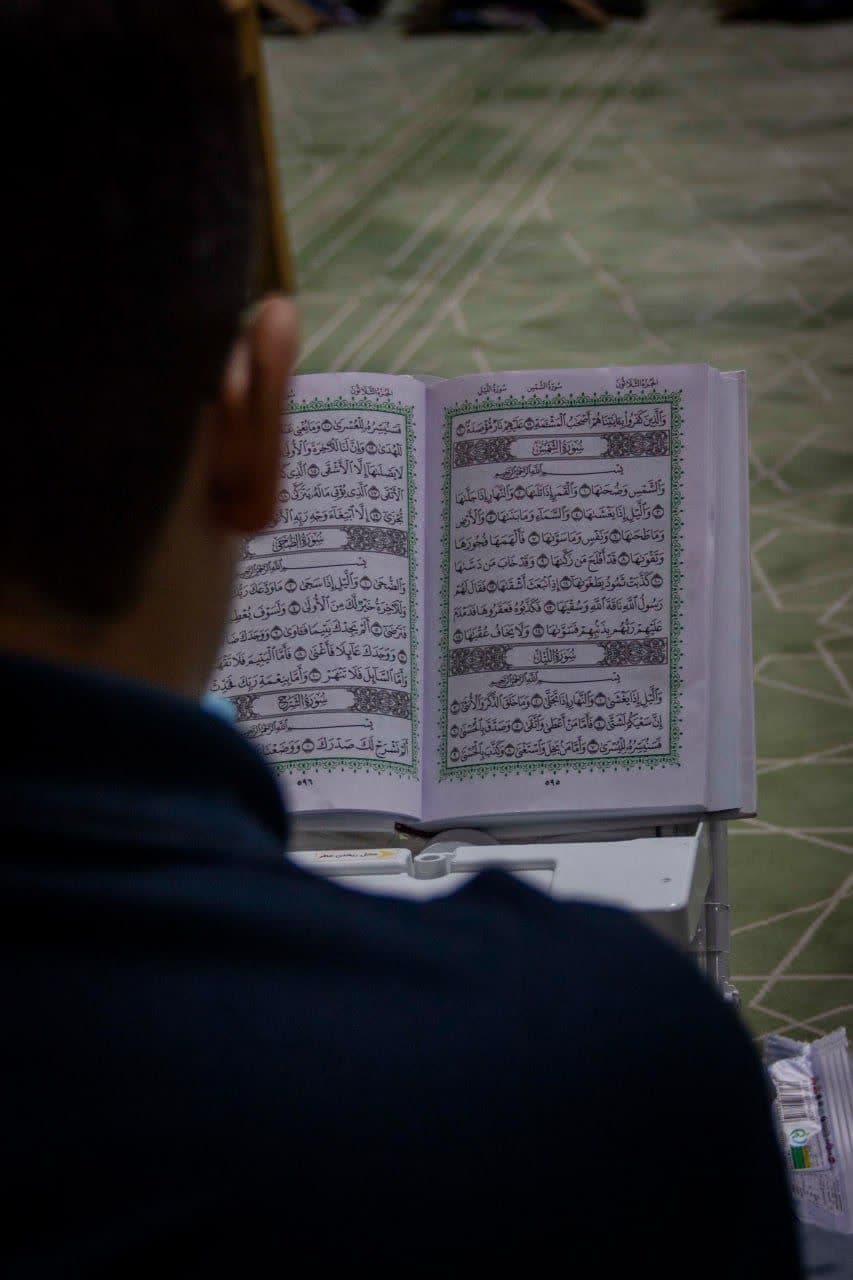 الجُزْءُ الثَّلَاثُونَ سُورَةُ الشَّمْسِ سُورَةُ اللَّيْلِ
وَالَّذِينَ كَفَرُوا بِـَٔايَٰتِنَا هُمْ أَصْحَٰبُ الْمَشْـَٔمَةِ ١٩ عَلَيْهِمْ نَارٌ مُّؤْصَدَةٌ ٢٠
سُورَةُ الشَّمْسِ
بِسْمِ اللَّهِ الرَّحْمَٰنِ الرَّحِيمِ
وَالشَّمْسِ وَضُحَىٰهَا ١ وَالْقَمَرِ إِذَا تَلَىٰهَا ٢ وَالنَّهَارِ إِذَا جَلَّىٰهَا
٣ وَالَّيْلِ إِذَا يَغْشَىٰهَا ٤ وَالسَّمَآءِ وَمَا بَنَىٰهَا ٥ وَالْأَرْضِ
وَمَا طَحَىٰهَا ٦ وَنَفْسٍ وَمَا سَوَّىٰهَا ٧ فَأَلْهَمَهَا فُجُورَهَا
وَتَقْوَىٰهَا ٨ قَدْ أَفْلَحَ مَن زَكَّىٰهَا ٩ وَقَدْ خَابَ مَن دَسَّىٰهَا
١٠ كَذَّبَتْ ثَمُودُ بِطَغْوَىٰهَا ١١ إِذِ انۢبَعَثَ أَشْقَىٰهَا ١٢ فَقَالَ لَهُمْ
رَسُولُ اللَّهِ نَاقَةَ اللَّهِ وَسُقْيَٰهَا ١٣ فَكَذَّبُوهُ فَعَقَرُوهَا فَدَمْدَمَ
عَلَيْهِمْ رَبُّهُم بِذَنۢبِهِمْ فَسَوَّىٰهَا ١٤ وَلَا يَخَافُ عُقْبَٰهَا ١٥
سُورَةُ اللَّيْلِ
بِسْمِ اللَّهِ الرَّحْمَٰنِ الرَّحِيمِ
وَالَّيْلِ إِذَا يَغْشَىٰ ١ وَالنَّهَارِ إِذَا تَجَلَّىٰ ٢ وَمَا خَلَقَ الذَّكَرَ وَالْأُنثَىٰٓ ٣
إِنَّ سَعْيَكُمْ لَشَتَّىٰ ٤ فَأَمَّا مَنْ أَعْطَىٰ وَاتَّقَىٰ ٥ وَصَدَّقَ بِالْحُسْنَىٰ ٦
فَسَنُيَسِّرُهُۥ لِلْيُسْرَىٰ ٧ وَأَمَّا مَنۢ بَخِلَ وَاسْتَغْنَىٰ ٨ وَكَذَّبَ بِالْحُسْنَىٰ ٩
٥٩٥
الجُزْءُ الثَّلَاثُونَ
فَسَنُيَسِّرُهُۥ لِلْعُسْرَىٰ ١٠ وَمَا يُغْنِى
لَلْهُدَىٰ ١٢ وَإِنَّ لَنَا لَلْـَٔاخِرَةَ وَالْأُولَىٰ
لَا يَصْلَىٰهَآ إِلَّا الْأَشْقَى ١٥ الَّذِى
الْأَتْقَى ١٧ الَّذِى يُؤْتِى مَالَهُۥ يَتَزَكَّىٰ
تُجْزَىٰٓ ١٩ إِلَّا ابْتِغَآءَ وَجْهِ رَبِّهِ
سُورَةُ الضُّحَىٰ
بِسْمِ اللَّهِ الرَّحْمَٰنِ الرَّحِيمِ
وَالضُّحَىٰ ١ وَالَّيْلِ إِذَا سَجَىٰ ٢ مَا وَدَّعَكَ
وَلَلْـَٔاخِرَةُ خَيْرٌ لَّكَ مِنَ الْأُولَىٰ ٤ وَلَسَوْفَ
فَتَرْضَىٰٓ ٥ أَلَمْ يَجِدْكَ يَتِيمًا فَـَٔاوَىٰ ٦ وَوَجَدَكَ
٧ وَوَجَدَكَ عَآئِلًا فَأَغْنَىٰ ٨ فَأَمَّا الْيَتِيمَ فَلَا
وَأَمَّا السَّآئِلَ فَلَا تَنْهَرْ ١٠ وَأَمَّا بِنِعْمَةِ رَبِّكَ فَحَدِّثْ
سُورَةُ الشَّرْحِ
بِسْمِ اللَّهِ الرَّحْمَٰنِ الرَّحِيمِ
أَلَمْ نَشْرَحْ لَكَ صَدْرَكَ ١ وَوَضَعْنَا
٥٩٦
محل ریختن عطر